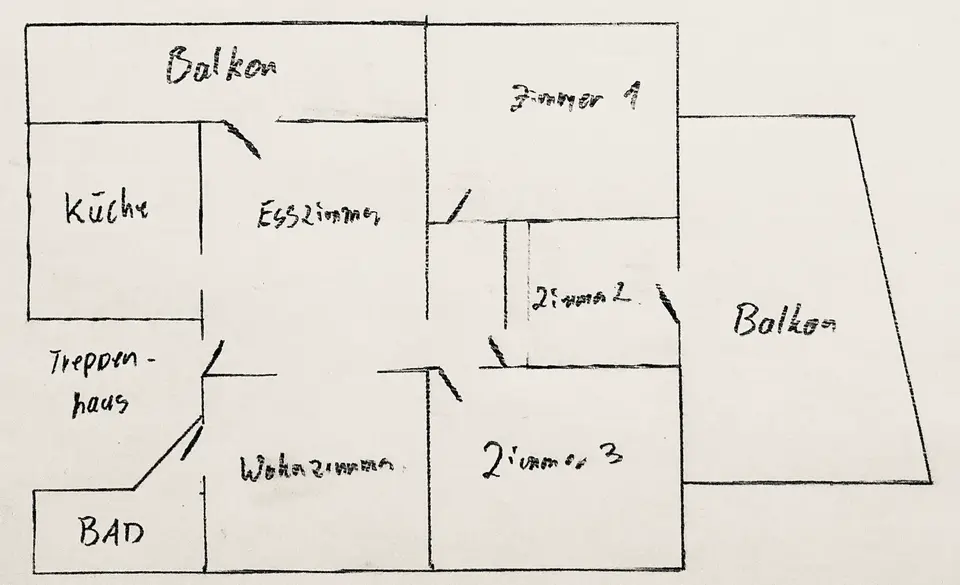 Balkon
Zimmer 1
Küche
Esszimmer
Zimmer 2
Balkon
Treppen-
haus
Wohnzimmer
Zimmer 3
BAD